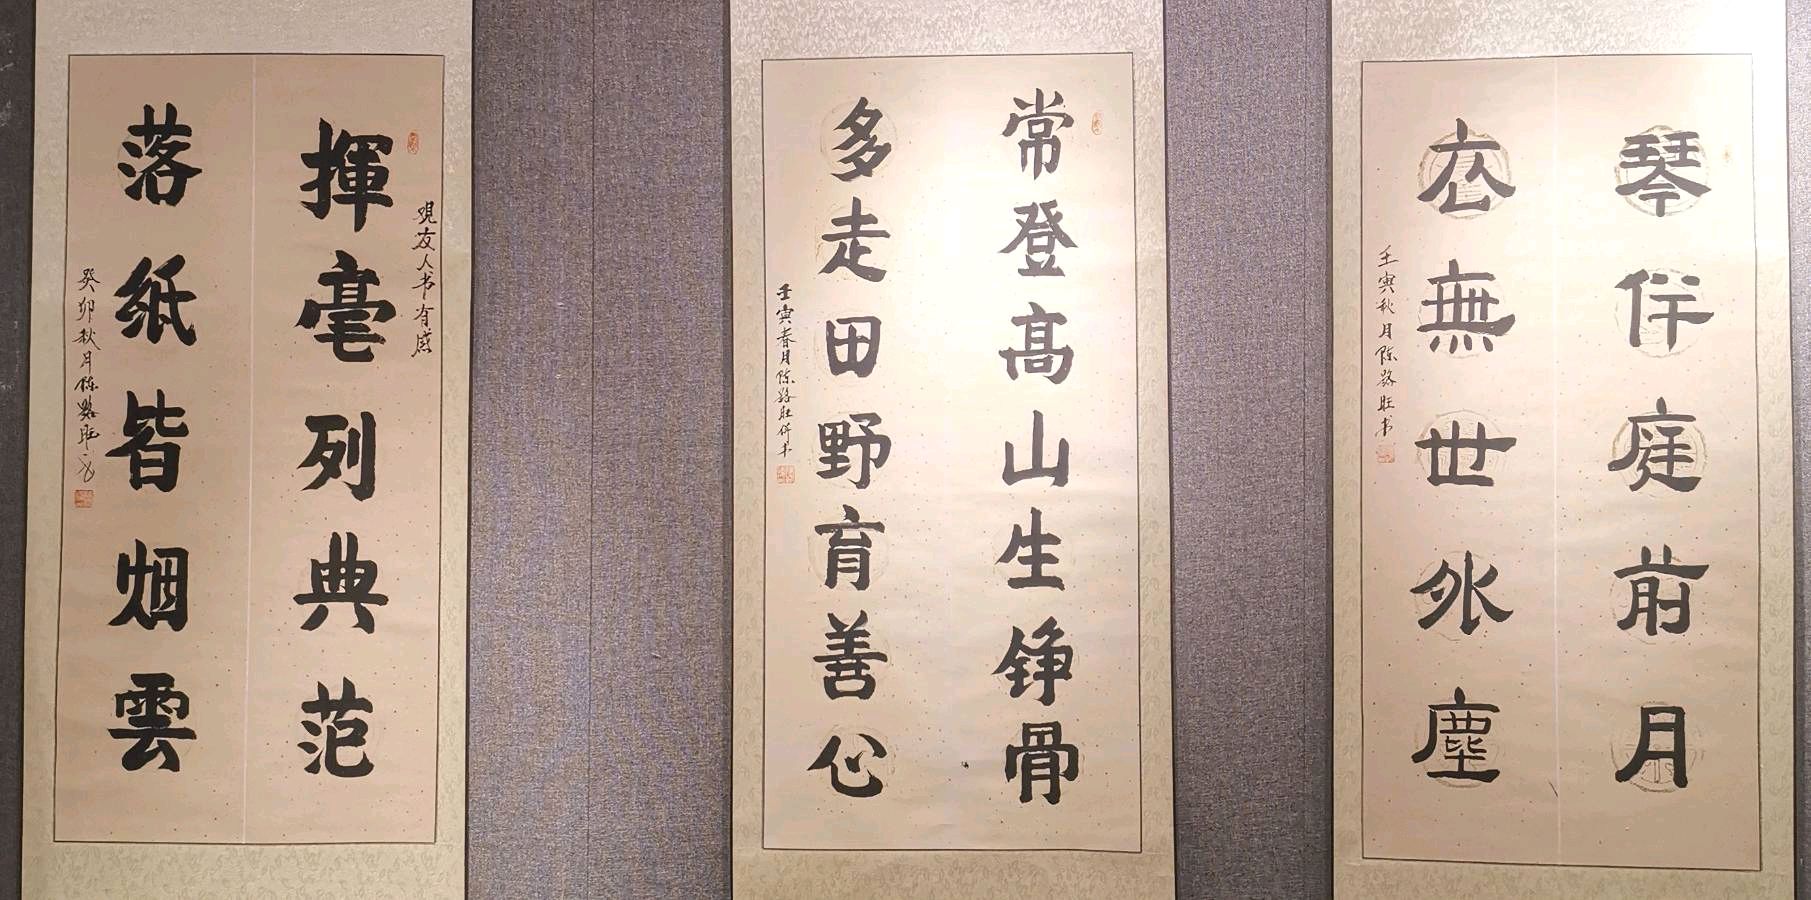 琴伴庭前月
衣無世外塵
壬寅秋月陈路旺书
常登髙山生铮骨
多走田野育善心
壬寅春月陈路旺书
观友人书有感
揮毫列典范
落纸皆烟雲
癸卯秋月陈路旺